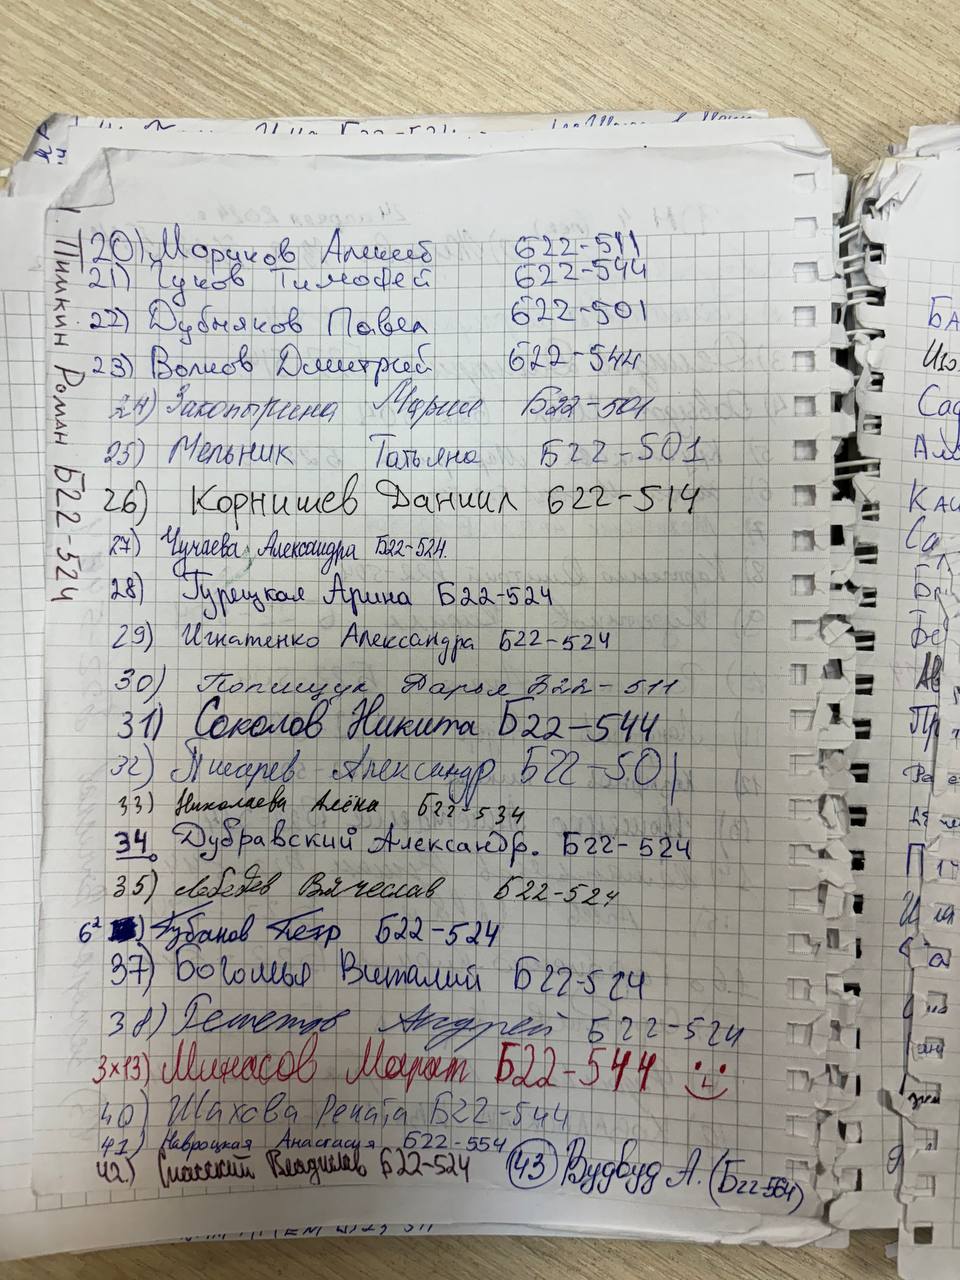 Пишкин Роман Б22-524
20) Моряков Алексей Б22-511
21) Гуков Тимофей Б22-544
22) Дубняков Павел Б22-501
23) Волков Дмитрий Б22-544
24) Закопырина Мария Б22-501
25) Мельник Татьяна Б22-501
26) Корнишев Даниил Б22-514
27) Чучаева Александра Б22-524.
28) Турецкая Арина Б22-524
29) Игнатенко Александра Б22-524
30) Полищук Дарья Б22-511
31) Соколов Никита Б22-544
32) Писарев Александр Б22-501
33) Николаева Алёна Б22-534
34. Дубравский Александр. Б22-524
35) Лебедев Вячеслав Б22-524
6²) Губанов Петр Б22-524
37) Боголья Виталий Б22-524
38) Андрей Б22-524
3×13) Минасов Марат Б22-544
40) Шахова Рената Б22-544
41) Навроцкая Анастасия Б22-554
42.) Спасский Владислав Б22-524
43 Вудвуд А. (Б22-564)